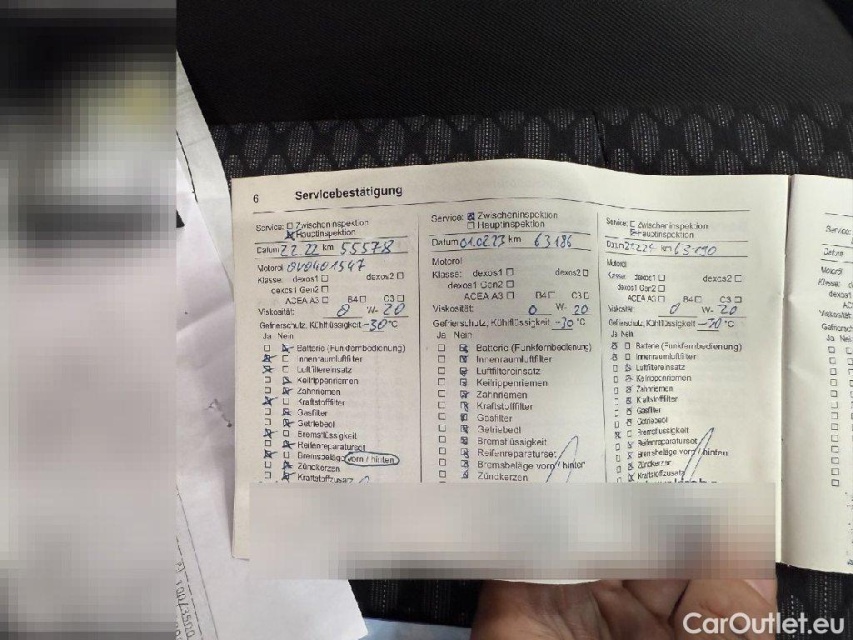 6 Servicebestätigung
Service: Zwischeninspektion
Hauptinspektion
Datum 22.22 km 55578
Motoröl
Klasse: dexos1 dexos2
dexos1 Gen2
ACEA A3 B4 C3
Viskosität: 0 W- 20
Gefrierschutz, Kühlflüssigkeit -30 °C
Ja Nein
Batterie (Funkfernbedienung)
Innenraumluftfilter
Luftfiltereinsatz
Keilrippenriemen
Zahnriemen
Kraftstofffilter
Gasfilter
Getriebeöl
Bremsflüssigkeit
Reifenreparaturset
Bremsbeläge vorn / hinten
Zündkerzen
Kraftstoffzusatz
Service: Zwischeninspektion
Hauptinspektion
Datum 01.02.23 km 63186
Motoröl
Klasse: dexos1 dexos2
dexos1 Gen2
ACEA A3 B4 C3
Viskosität: 0 W- 20
Gefrierschutz, Kühlflüssigkeit -30 °C
Ja Nein
Batterie (Funkfernbedienung)
Innenraumluftfilter
Luftfiltereinsatz
Keilrippenriemen
Zahnriemen
Kraftstofffilter
Gasfilter
Getriebeöl
Bremsflüssigkeit
Reifenreparaturset
Bremsbeläge vorn / hinten
Zündkerzen
Service: Zwischeninspektion
Hauptinspektion
Datum km
Motoröl
Klasse: dexos1 dexos2
dexos1 Gen2
ACEA A3 B4 C3
Viskosität: 0 W- 20
Gefrierschutz, Kühlflüssigkeit °C
Ja Nein
Batterie (Funkfernbedienung)
Innenraumluftfilter
Luftfiltereinsatz
Keilrippenriemen
Zahnriemen
Kraftstofffilter
Gasfilter
Getriebeöl
Bremsflüssigkeit
Reifenreparaturset
Bremsbeläge vorn / hinten
Zündkerzen
Kraftstoffzusatz
CarOutlet.eu